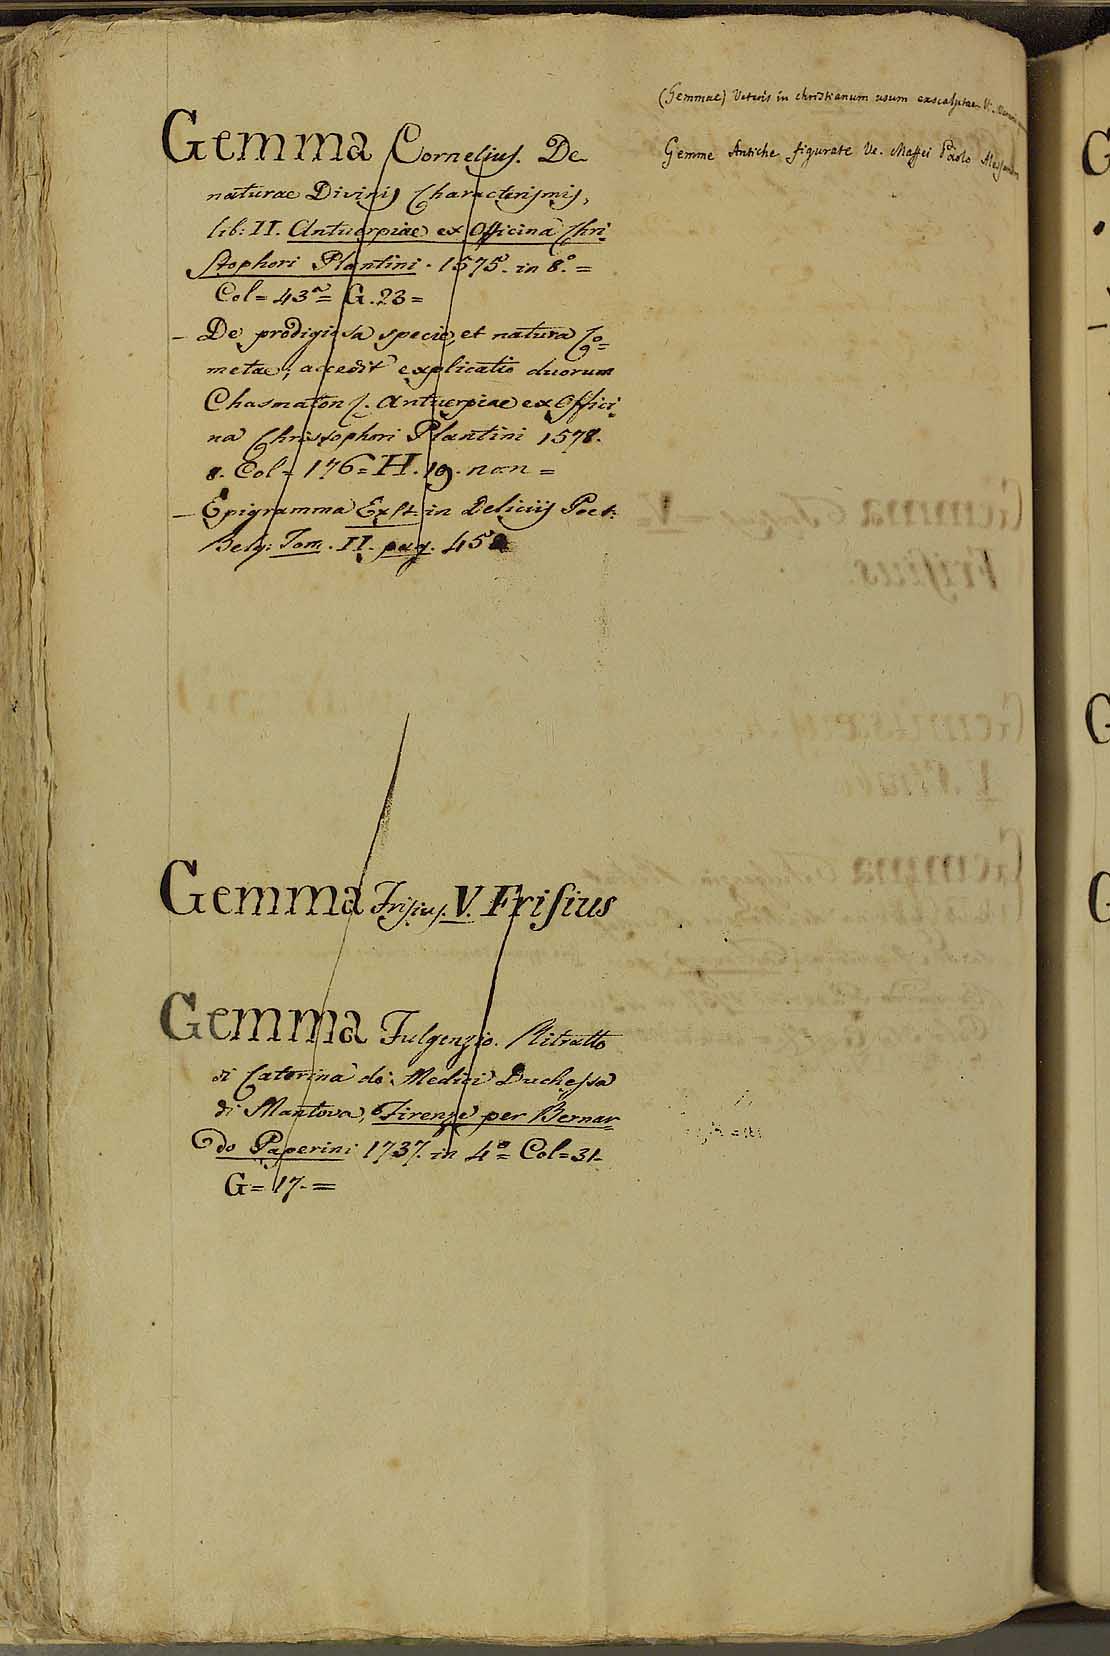 Gemma Cornelius. De
naturae Divinis Characterismis,
lib: II. Antuerpiae ex Officina Chri-
stophori Plantini. 1575. in 8.º =
Col= 43ª= G.23=
- De prodigiosa specie, et natura Co-
metae; accedit explicatio duorum
Chasmaton &. Antuerpiae ex Offici-
na Christophori Plantini 1578.
8. Col= 176= H.19. non=
- Epigramma Exst. in Deliciis Poet:
Belg: Tom. II. pag. 45
Gemma Frisius. V. Frisius
Gemma Fulgenzio. Ritratto
di Caterina de' Medici Duchessa
di Mantova, Firenze per Bernar-
do Paperini 1737. in 4º= Col=31-
G= 17.=
(Gemmae) Veteris in christianum usum exscalptae V.
Gemme Antiche figurate Ve. Maffei Paolo Alessandro